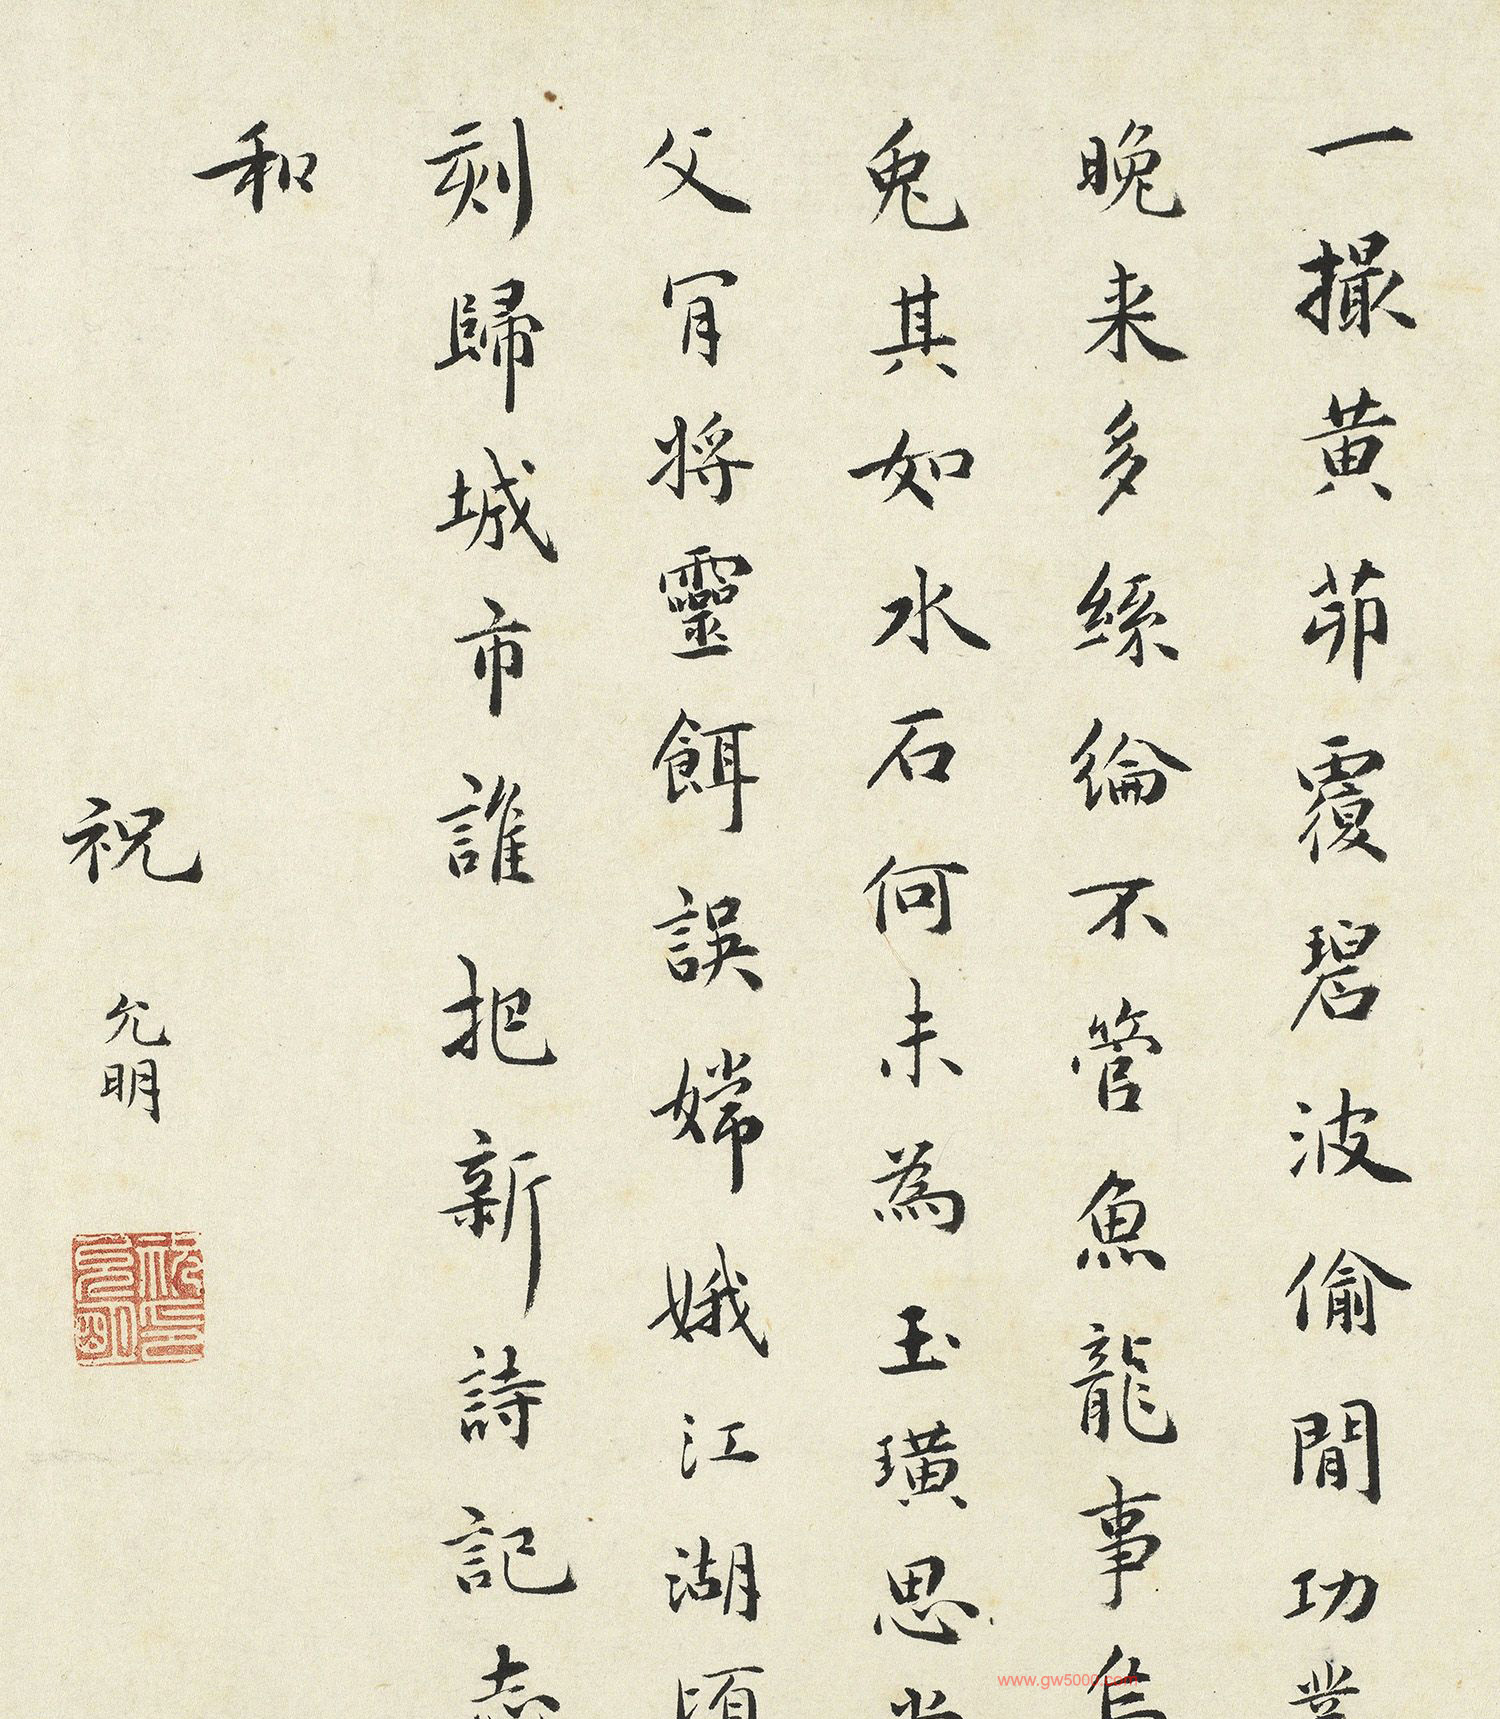 一撮黄茆覆碧波偷閒功業
晚来多絲綸不管魚龍事烏
兔其如水石何未為玉璜思尚
父肎將靈餌誤嫦娥江湖頃
刻歸城市誰把新詩記志
和
祝允明
祝允明印
www.gw5000.com